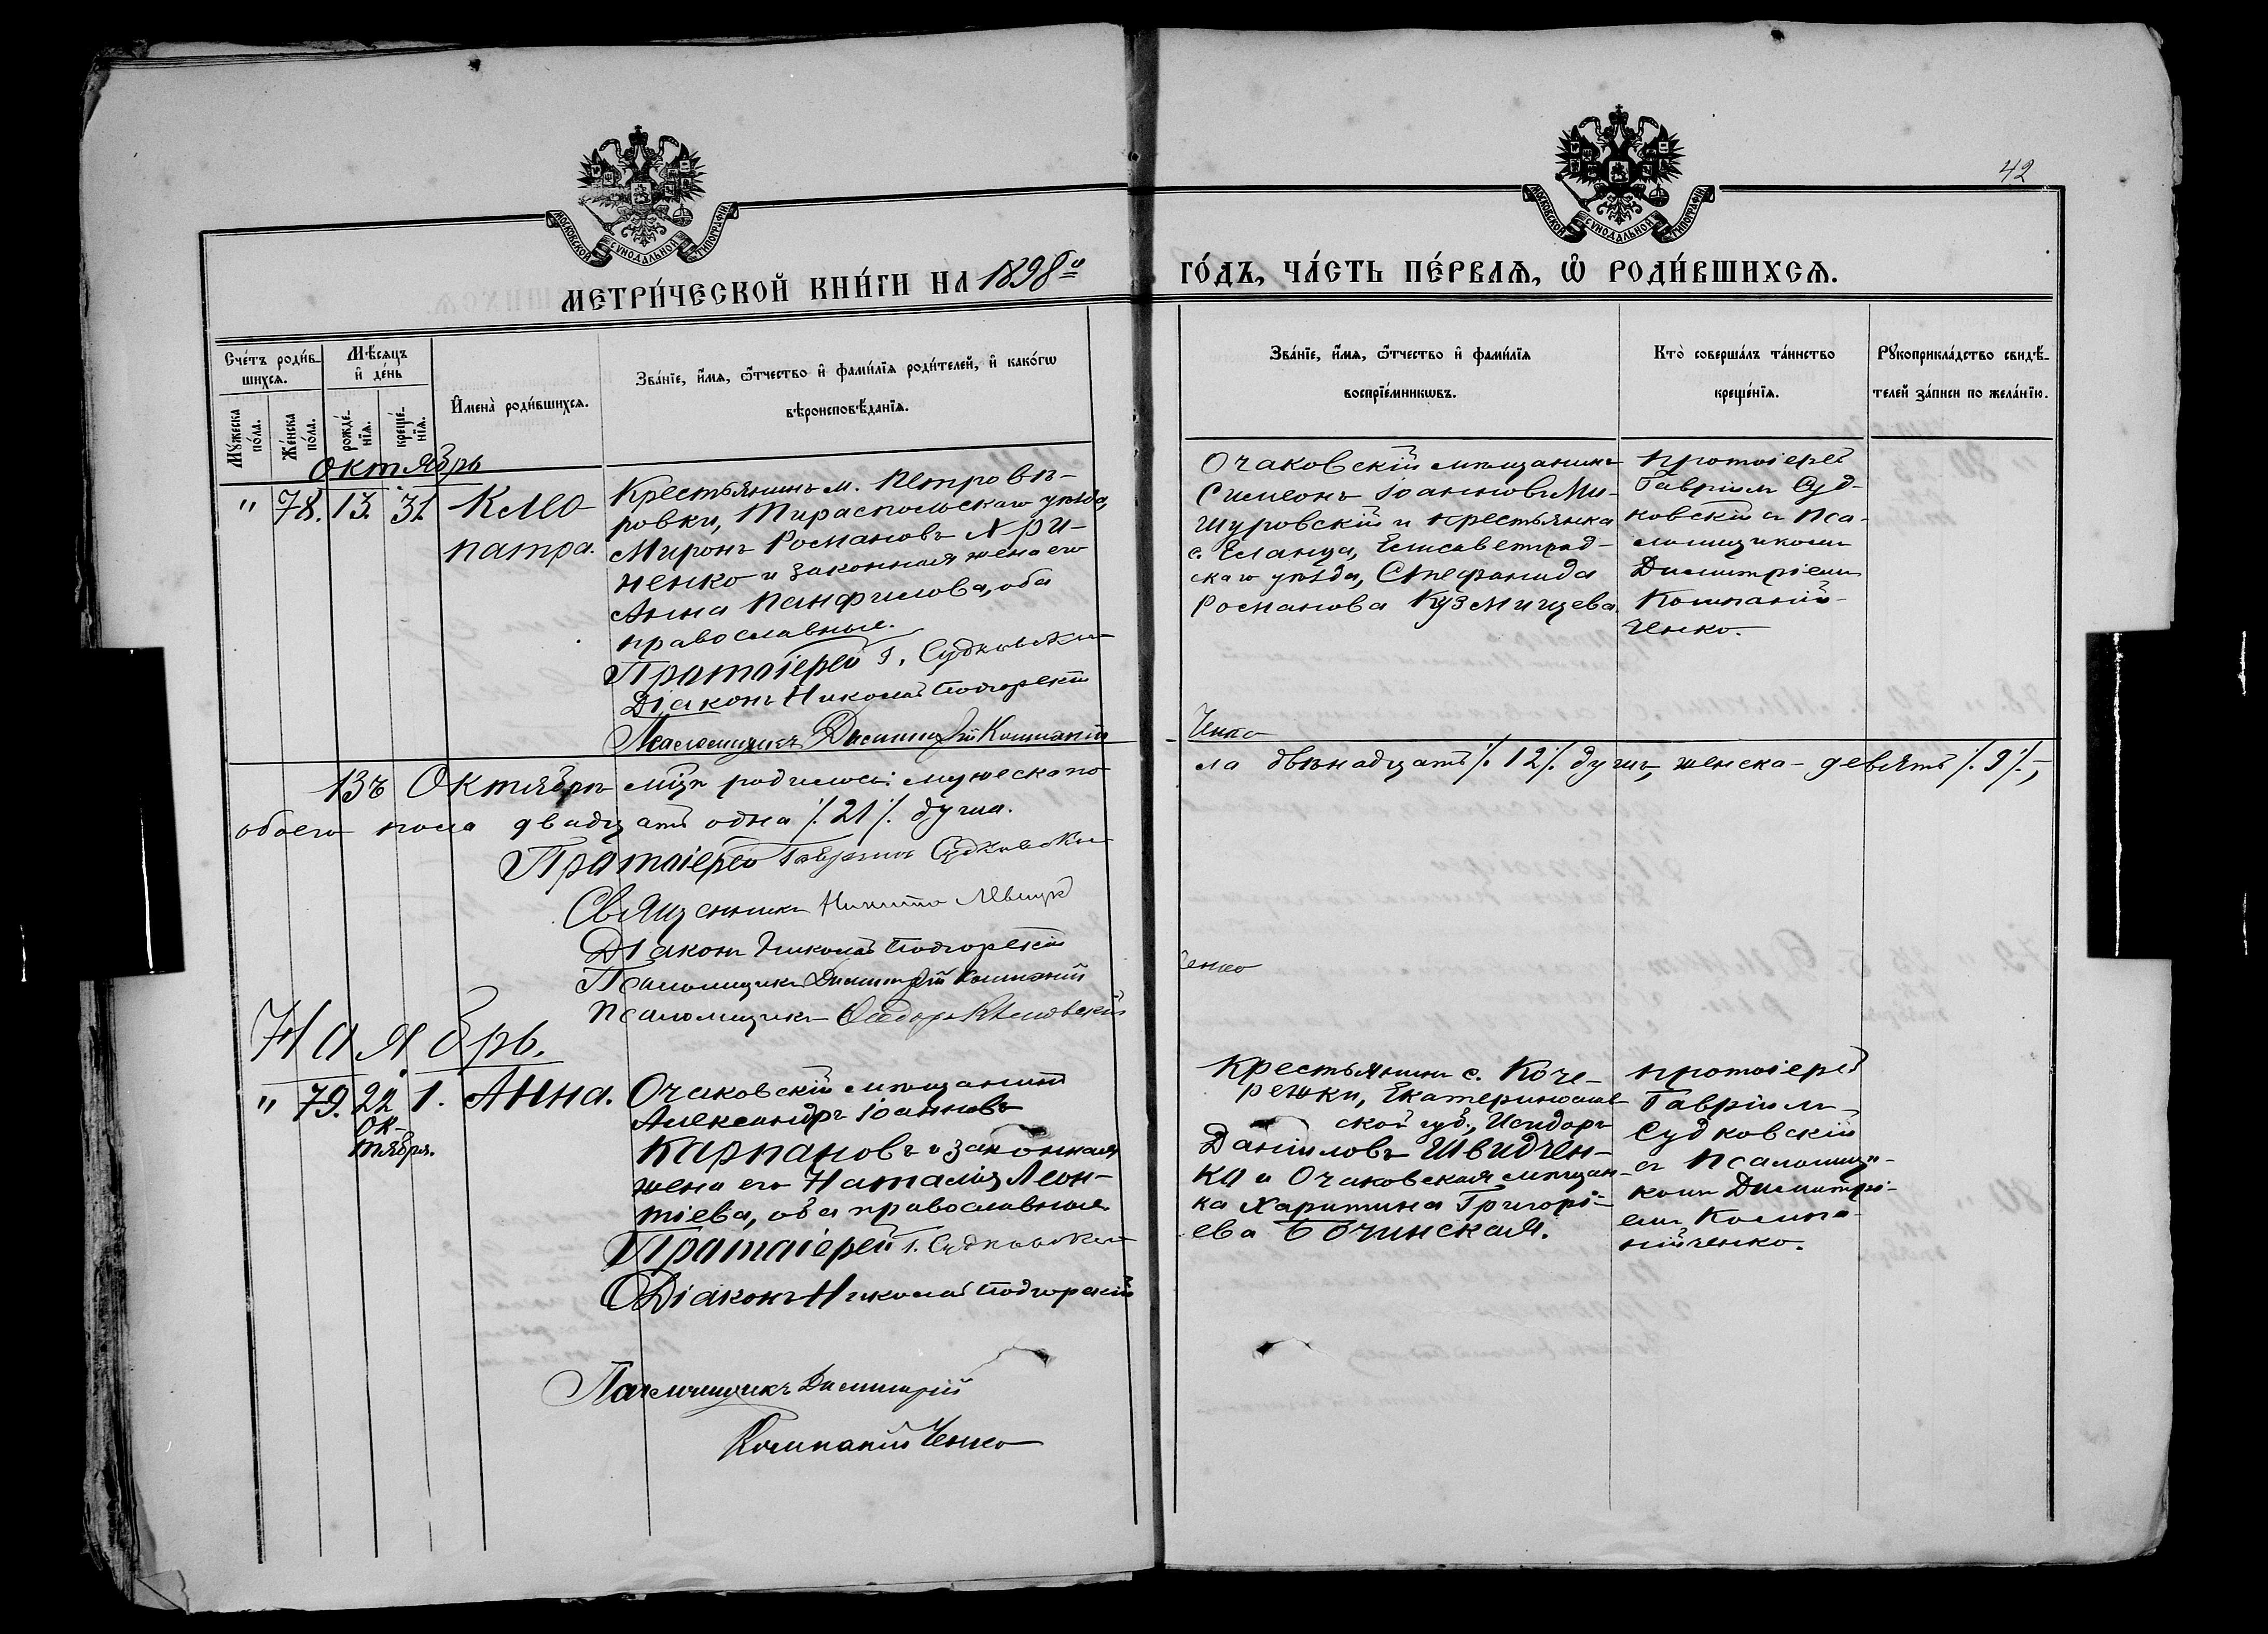 42
МОСКОВСКОЙ СѴНОДАЛЬНОЙ ТИПОГРАФІИ
МОСКОВСКОЙ СѴНОДАЛЬНОЙ ТИПОГРАФІИ
МЕТРИ́ЧЕСКОЙ КНИ́ГИ НА 1898й
ГО́ДЪ, ЧА́СТЬ ПЕ́РВАЯ, Ѡ РОДИ́ВШИХСЯ.
Сче́тъ роди́в-
шихся.
Мꙋ́жеска по́ла.
Же́нска по́ла.
Мѣ́сяцъ
и де́нь
рожде́-
нїя.
креще́-
нїя.
Имена̀ роди́вшихся.
Зва́нїе, и́мя, ѻ́тчество и фами́лїя роди́телей, и како́гѡ
вѣроисповѣ́данїя.
Зва́нїе, и́мя, ѻ́тчество и фами́лїя
воспрїе́мникѡвъ.
Кто̀ соверша́лъ та́инство
креще́нїя.
Рꙋкоприкла́дство свидѣ́-
телей за́писи по жела́нїю.
Октябрь
" 78. 13. 31. Клео-
патра.
Крестьянинъ м. Петровѣ-
ровки, Тираспольскаго уѣзда,
Миронъ Романовъ Хри-
ненко и законная жена его
Анна Панфилова, оба
православные.
Протоіерей Г. Судковскій
Діаконъ Николай Подгорскій
Псаломщикъ Димитрій Компаній
Ченко
Очаковскій мѣщанинъ
Симеонъ Іоанновъ Ми-
щуровскій и крестьянка
с. Еланца, Елисаветград-
скаго уѣзда, Стефанида
Романова Кузмичцева.
Протоіерей
Гавріилъ Суд-
ковскій съ Пса-
ломщикомъ
Димитріемъ
Компаній-
ченко.
Въ Октябрѣ мцѣ родилось: мужеска по-
ла двѣнадцать /. 12 /. душъ, женска - девять /. 9 /. -,
обоего пола двадцать одна /. 21 /. душа.
Протоіерей Гавріилъ Судковскій
Священникъ Никита Левицкій
Діаконъ Николай Подгорскій
Псаломщикъ Димитрій Компаній
ченко
Псаломщикъ Ѳеодоръ
Ноябрь.
" 79. 22 1. Анна.
Ок-
тября.
Очаковскій мѣщанинъ
Александръ Іоанновъ
Карпановъ и законная
жена его Наталія Леон-
тіева, оба православные
Протоіерей Г. Судковскій
Діаконъ Николай Подгорскій
Псаломщикъ Димитрій
Компаній Ченко
Крестьянинъ с. Коче-
режки, Екатеринослав-
ской губ., Исидоръ
Даніиловъ Швидчен-
ко и Очаковская мѣщан-
ка Харитина Григорі-
ева Бочинская.
Протоіерей
Гавріилъ
Судковскій
съ Псаломщи-
комъ Димитрі-
емъ Компа-
нійченко.